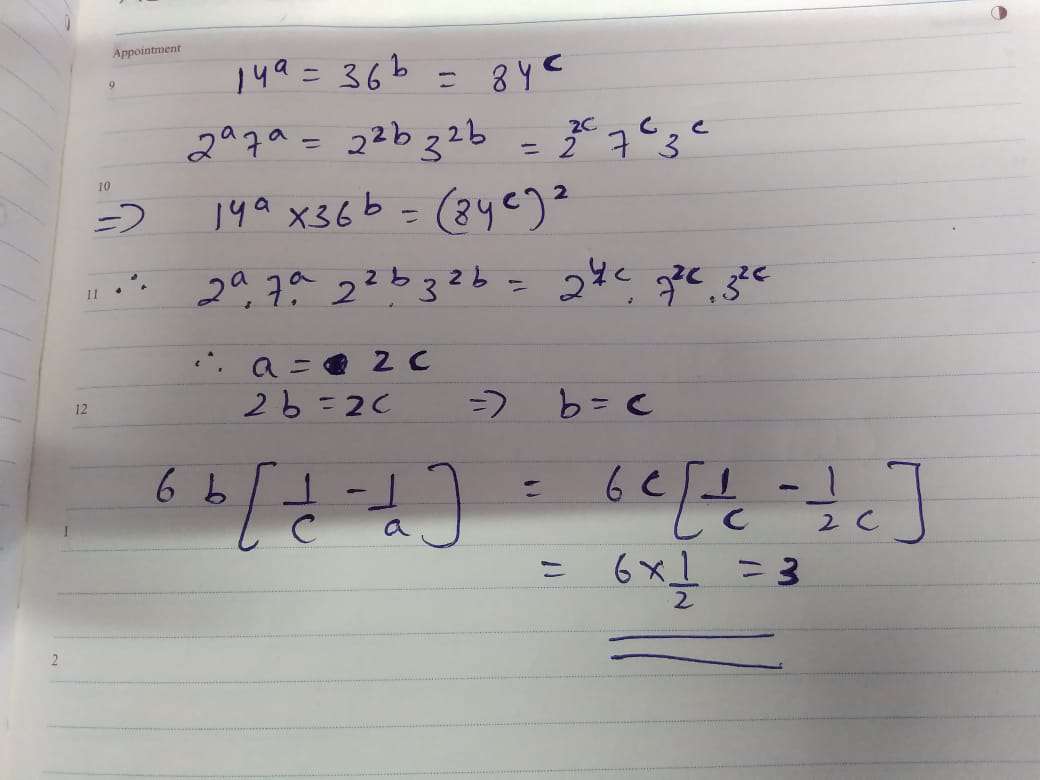 Appointment
9 14ᵃ = 36ᵇ = 84ᶜ
2ᵃ7ᵃ = 2²ᵇ3²ᵇ = 2²ᶜ 7ᶜ 3ᶜ
10
=> 14ᵃ ×36ᵇ = (84ᶜ)²
11 ∴ 2ᵃ.7ᵃ. 2²ᵇ.3²ᵇ = 2⁴ᶜ. 7²ᶜ.3²ᶜ
∴ a = 2c
12 2b = 2c => b = c
6b[1/c - 1/a] = 6c[1/c - 1/2c]
1
= 6×1/2 = 3
2